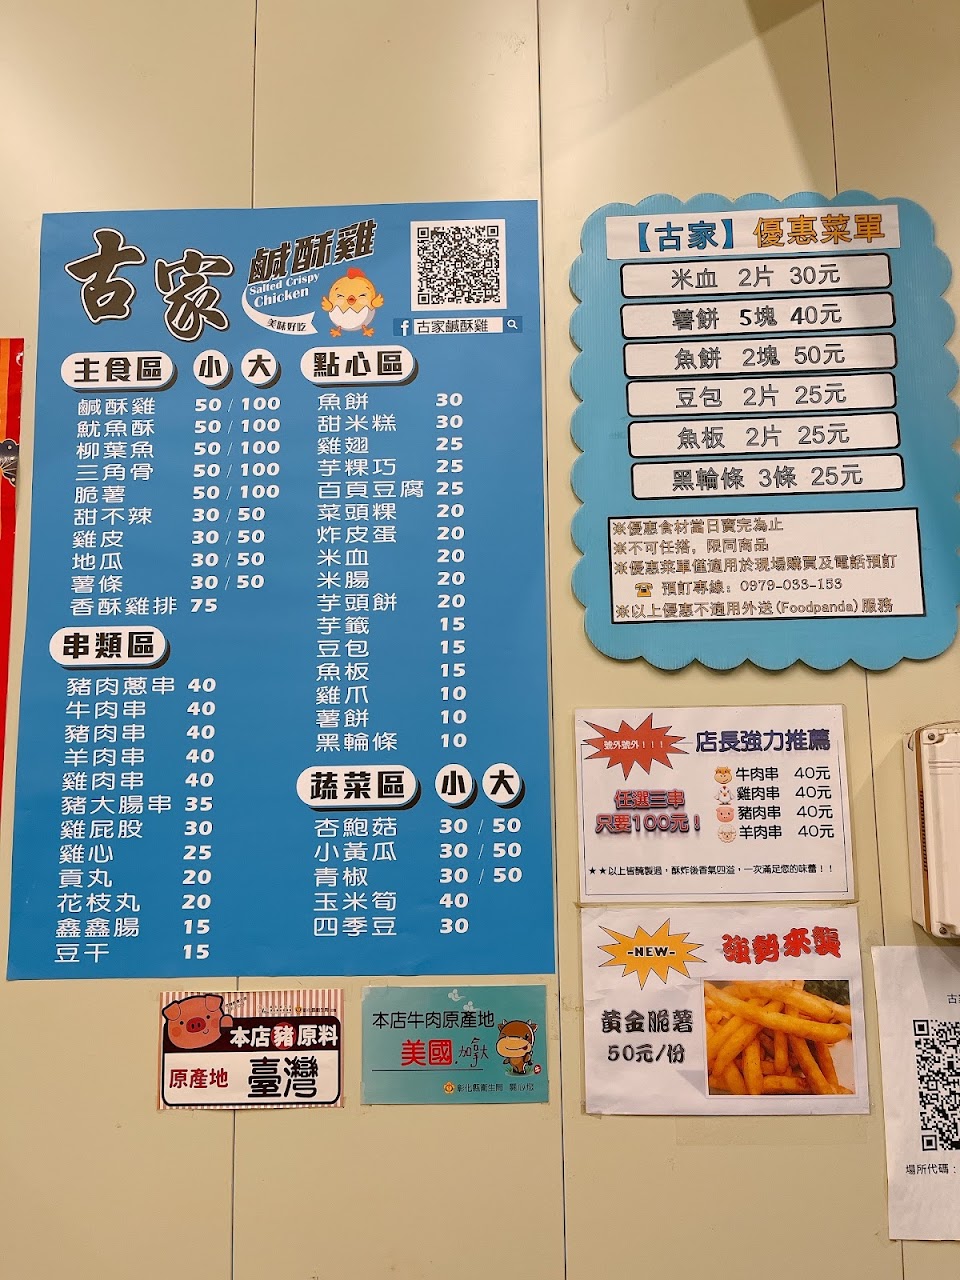 古家
鹹酥雞
Salted Crispy
Chicken
美味好吃
f 古家鹹酥雞
主食區 小 大
鹹酥雞 50 / 100
魷魚酥 50 / 100
柳葉魚 50 / 100
三角骨 50 / 100
脆薯 50 / 100
甜不辣 30 / 50
雞皮 30 / 50
地瓜 30 / 50
薯條 30 / 50
香酥雞排 75
串類區
豬肉蔥串 40
牛肉串 40
豬肉串 40
羊肉串 40
雞肉串 40
豬大腸串 35
雞屁股 30
雞心 25
貢丸 20
花枝丸 20
鑫鑫腸 15
豆干 15
點心區
魚餅 30
甜米糕 30
雞翅 25
芋粿巧 25
百頁豆腐 25
菜頭粿 20
炸皮蛋 20
米血 20
米腸 20
芋頭餅 20
芋籤 15
豆包 15
魚板 15
雞爪 10
薯餅 10
黑輪條 10
蔬菜區 小 大
杏鮑菇 30 / 50
小黃瓜 30 / 50
青椒 30 / 50
玉米筍 40
四季豆 30
【古家】優惠菜單
米血 2片 30元
薯餅 5塊 40元
魚餅 2塊 50元
豆包 2片 25元
魚板 2片 25元
黑輪條 3條 25元
※優惠食材當日賣完為止
※不可任搭，限同商品
※優惠菜單僅適用於現場購買及電話預訂
☎ 預訂專線：0979-033-153
※以上優惠不適用外送(Foodpanda)服務
號外號外！！！
店長強力推薦
任選三串
只要100元！
牛肉串 40元
雞肉串 40元
豬肉串 40元
羊肉串 40元
★★以上皆醃製過，酥炸後香氣四溢，一次滿足您的味蕾！！
-NEW-
強勢來襲
黃金脆薯
50元/份
本店豬原料
原產地 臺灣
本店牛肉原產地
美國.加拿大
彰化縣衛生局 關心您
場所代碼：